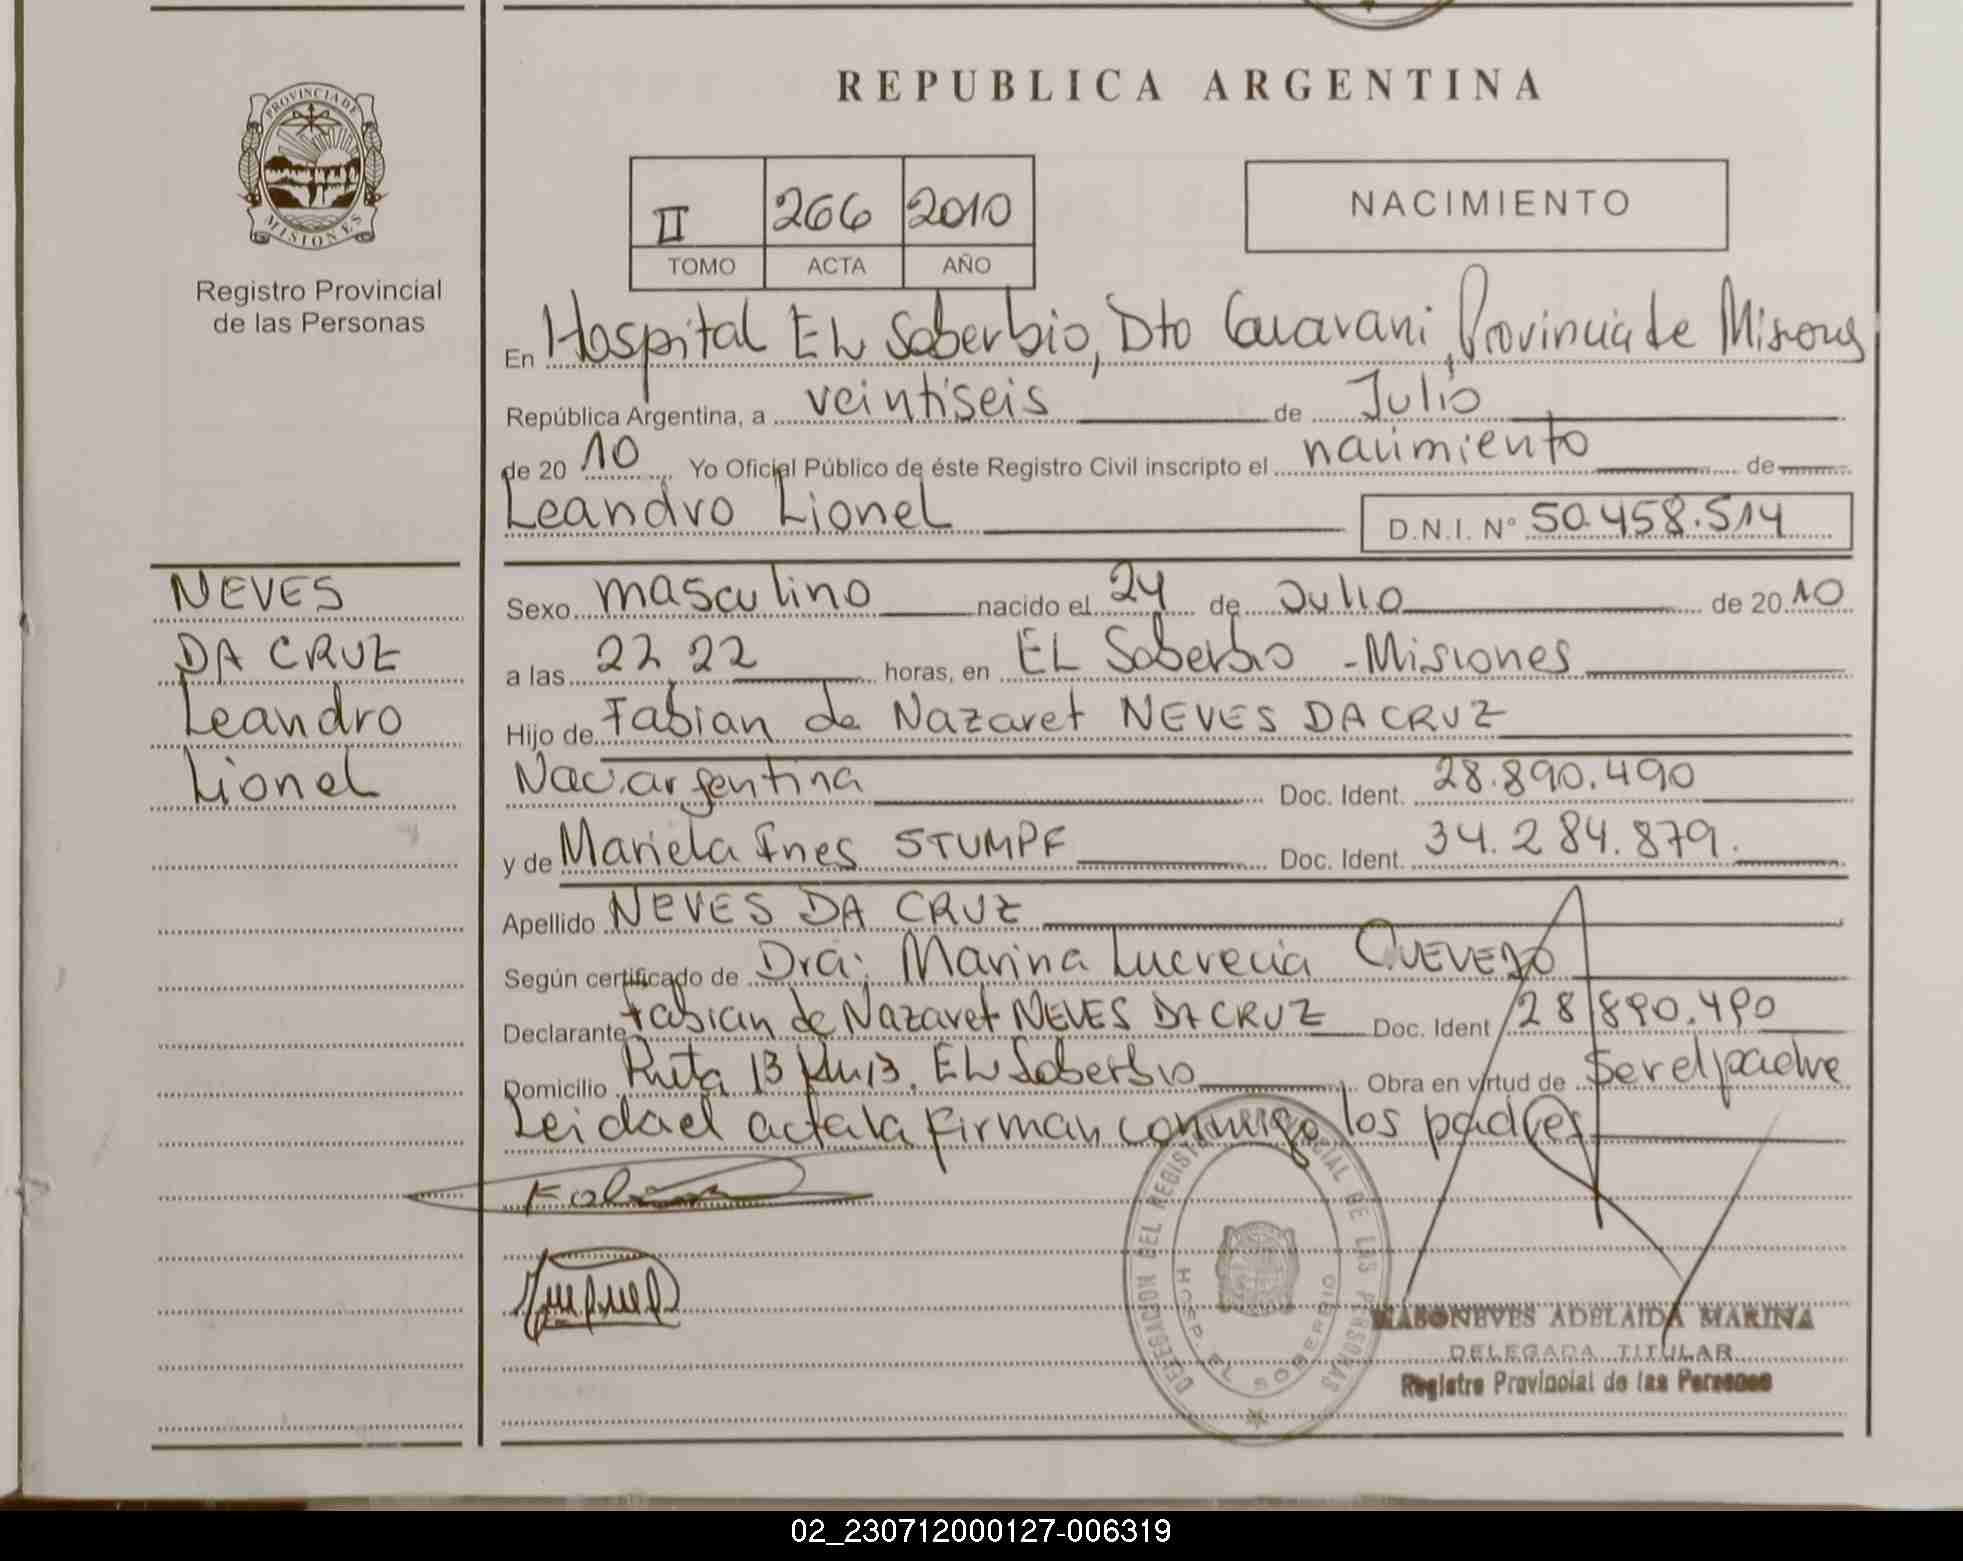 REPUBLICA ARGENTINA
PROVINCIA DE
MISIONES
Registro Provincial
de las Personas
II 266 2010
TOMO ACTA AÑO
NACIMIENTO
En Hospital EL Soberbio, Dto Guarani, Provincia de Misiones
República Argentina, a veintiseis de Julio
de 20 10 Yo Oficial Público de éste Registro Civil inscripto el nacimiento de
Leandro Lionel D.N.I. N° 50.458.514
NEVES
DA CRUZ
Leandro
Lionel
Sexo masculino nacido el 24 de Julio de 20 10
a las 22 22 horas, en EL Soberbio - Misiones
Hijo de Fabian de Nazaret NEVES DA CRUZ
Nac. argentina Doc. Ident. 28.890.490
y de Mariela Ines STUMPF Doc. Ident. 34.284.879.
Apellido NEVES DA CRUZ
Según certificado de Dra: Marina Lucrecia QUEVEDO
Declarante Fabian de Nazaret NEVES DA CRUZ Doc. Ident 28.890.490
Domicilio Ruta 13 Km 13. EL Soberbio Obra en virtud de Ser el padre
Leida el acta la firman conmigo los padres
DELEGACION DEL REGISTRO PROVINCIAL DE LAS PERSONAS
HOSP. EL SOBERBIO
MABONEVES ADELAIDA MARINA
DELEGADA TITULAR
Registro Provincial de las Personas
02_230712000127-006319